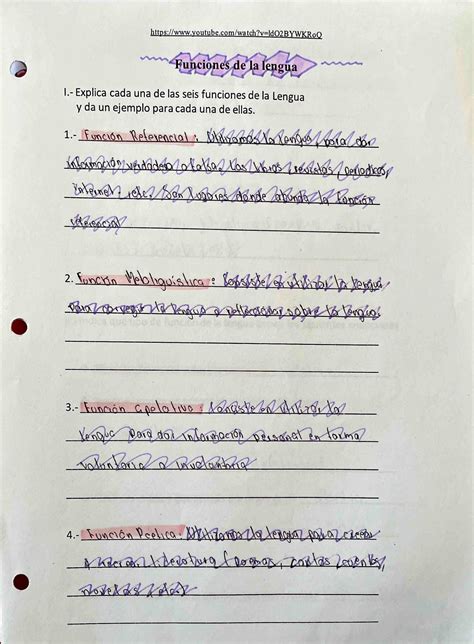 https://www.youtube.com/watch?v=ldO2BYWKRoQ
Funciones de la lengua
I.- Explica cada una de las seis funciones de la Lengua
y da un ejemplo para cada una de ellas.
1.- Función Referencial: Utilizamos la lengua, para dar
información verdadera o falsa. Los libros, revistas, periodicos,
internet, etc. Son lugares donde abunda la función
referencial
2. Función Metalinguistica: Consiste en utilizar la lengua
para corregir la lengua o reflexionar sobre la lengua.
3.- Función apelativa: Consiste en utilizar la
lengua para dar información personal en forma
voluntaria o involuntaria
4.- Función Poetica: Utilizamos la lengua para crear
o literatura (poemas, cuentos,
novelas